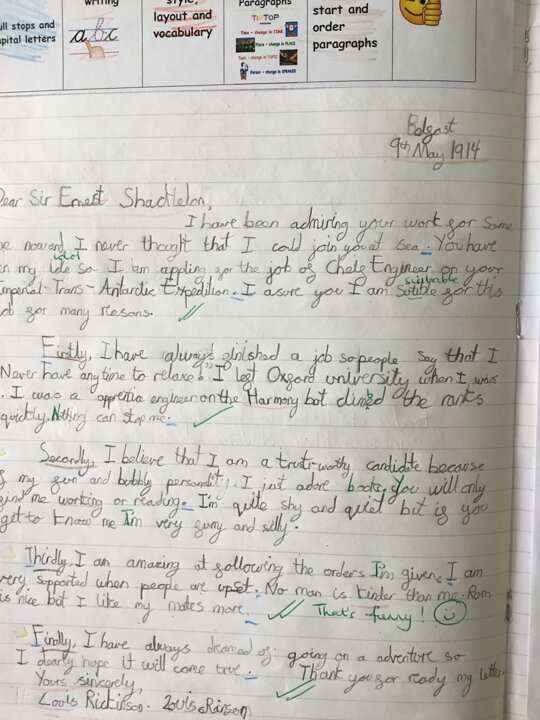 ull stops and
apital letters
writing
abc
style,
layout and
vocabulary
Paragraphs
TiPTOP
Time - change in TIME
Place - change in PLACE
Topic - change in TOPIC
Person - change in SPEAKER
start and
order
paragraphs
Belfast
9th May 1914
Dear Sir Ernest Shackleton,
I have been admiring your work for some
e noward I never thought that I could join you at sea. You have
idol
n my idle so I am appling for the job of Chefe Engineer on your
suitable
Imperial-Trans-Antarctic Expedition. I asure you I am Sutible for this
ob for many reasons.
Firstly, I have always finished a job so people say that I
"Never have any time to relaxe!" I left Oxford university when I was
. I was a apprentie engineer on the Harmony bot climbed the ranks
quickly. Nothing can stop me.
Secondly, I believe that I am a trust-worthy candidate because
f my fun and bubbly personality. I just adore books. You will only
find me working or reading. I'm quite shy and quiet but if you
get to know me I'm very funy and silly.
Thirdly, I am amazing at following the orders I'm given. I am
very supported when people are upset. No man is kinder than me. Rum
is nice but I like my mates more.
That's funny!
Finally, I have always dreamed of going on a adventure so
I dearly hope it will come true. Thank you for ready my letter
Yours sincerely,
Louis Rickinson.